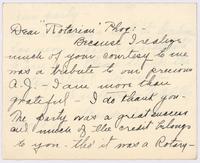 Dear "Rotarian" Phog:-
Because I realize
much of your courtesy to me
was a tribute to our precious
A.J. - I am more than
grateful - I do thank you -
The party was a great success
and much of the credit belongs
to you - tho' it was a Rotary-